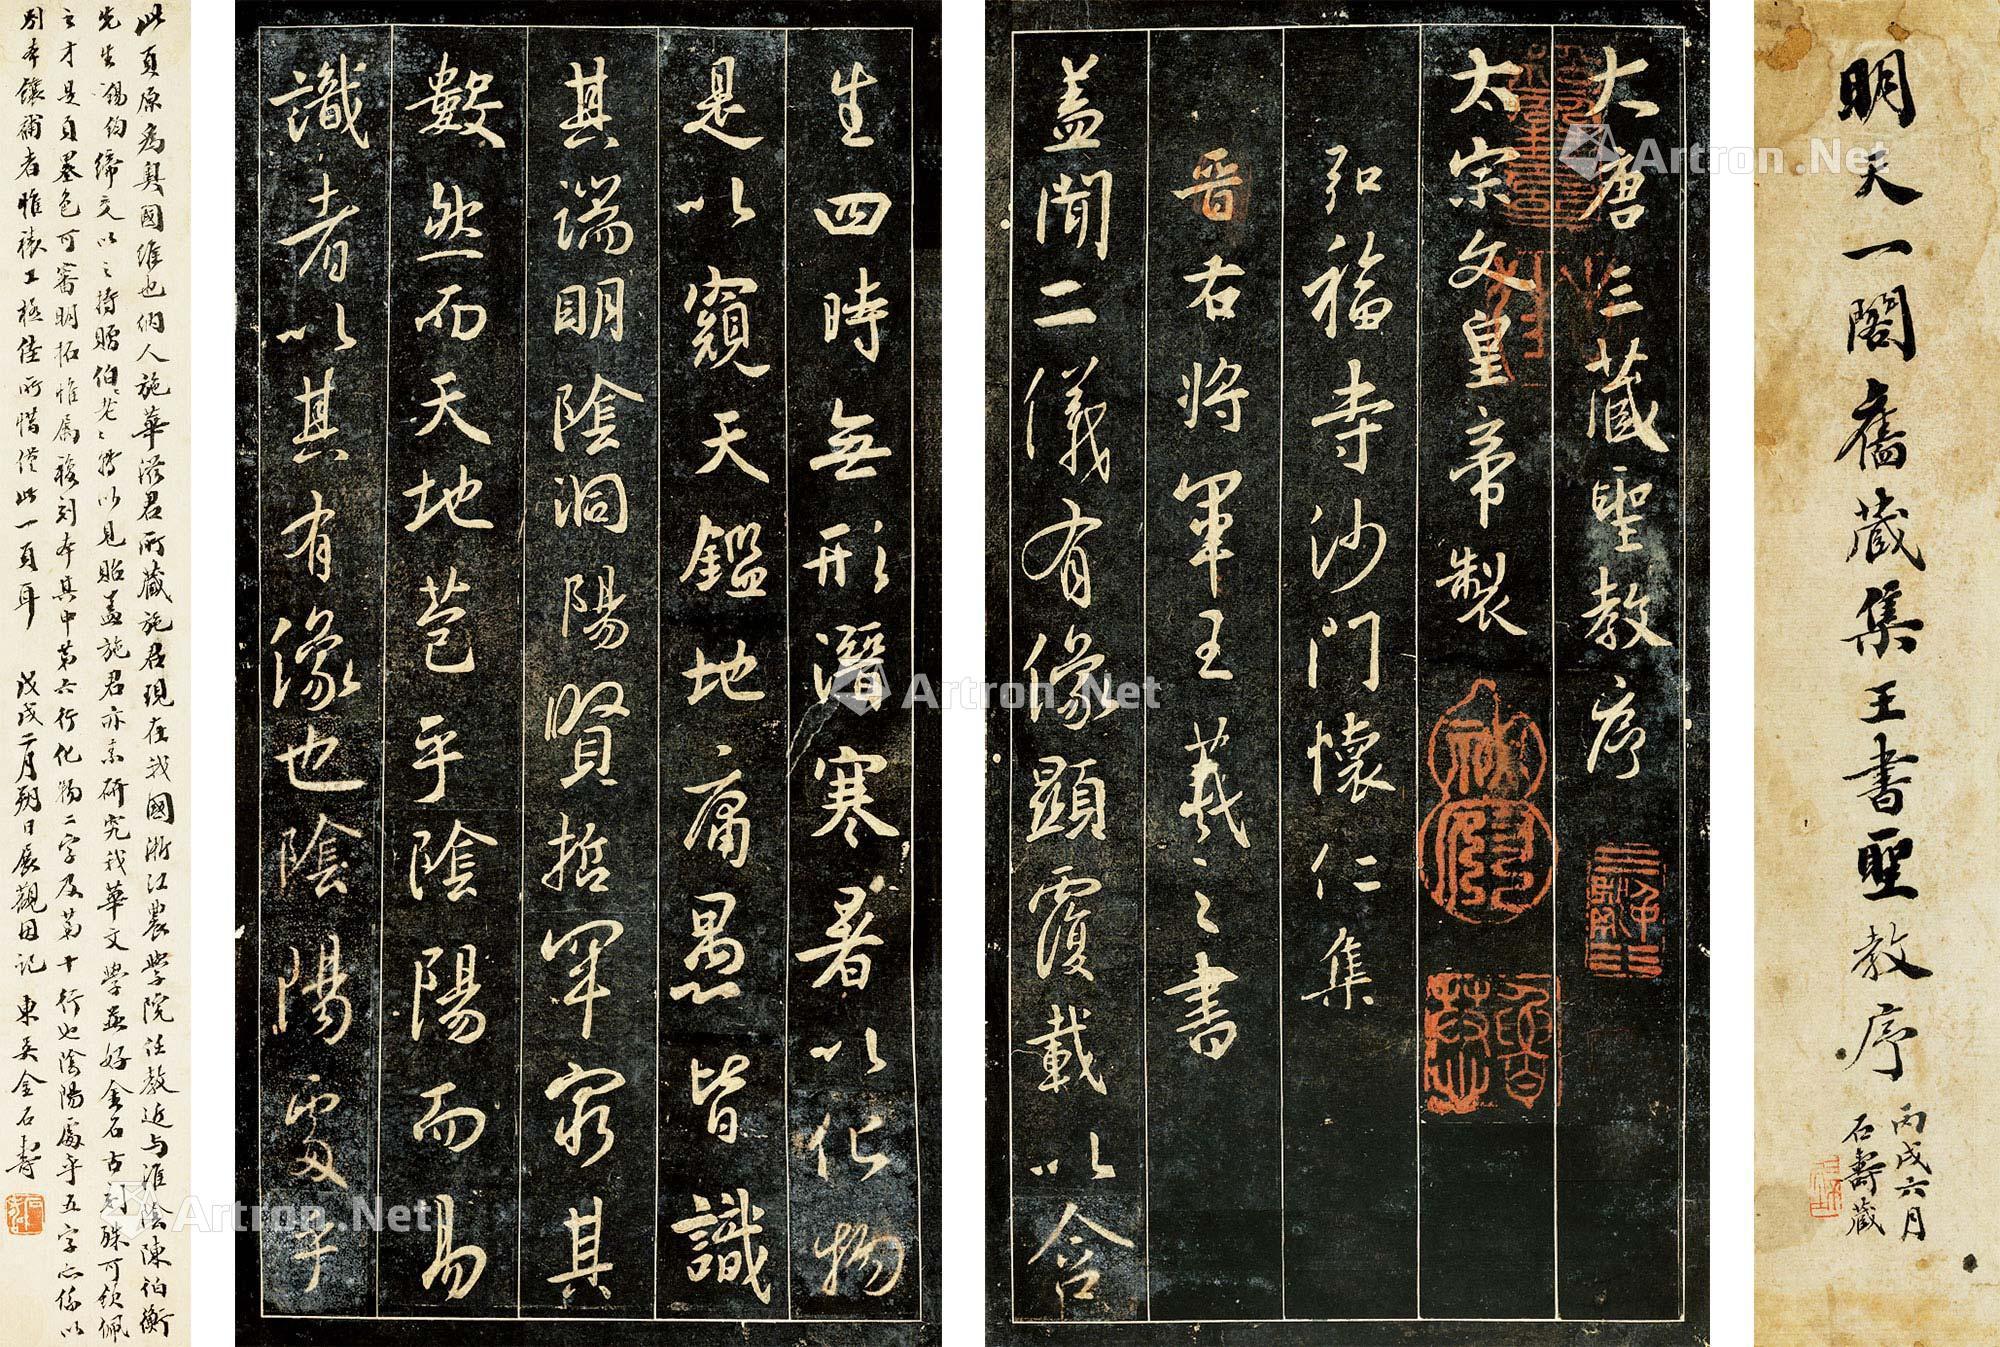 明天一閣舊藏集王書聖教序
丙戌六月
石壽藏
大唐三藏聖教序
太宗文皇帝製
弘福寺沙門懷仁集
晉右將軍王羲之書
蓋聞二儀有像顯覆載以含
生四時無形潛寒暑以化物
是以窺天鑑地庸愚皆識
其端明陰洞陽賢哲罕窮其
數然而天地苞乎陰陽而易
識者以其有像也陰陽處乎
此頁原為奧國維也納人施華滋君所藏施君現在我國浙江農學院任教近与淮陰陳伯衡
先生錫鈞締交以之持贈伯老老轉以見貽蓋施君亦素研究我華文學並好金石古刻殊可欽佩
之才是頁墨色可審明拓惟屬複刻本其中第六行化物二字及第十行也陰陽處乎五字亦係以
別本鑲補者唯裱工極佳所惜僅此一頁耳 戊戌二月朔日展觀因記 東吳金石壽
Artron.Net
Artron.Net
Artron.Net
Artron.Net